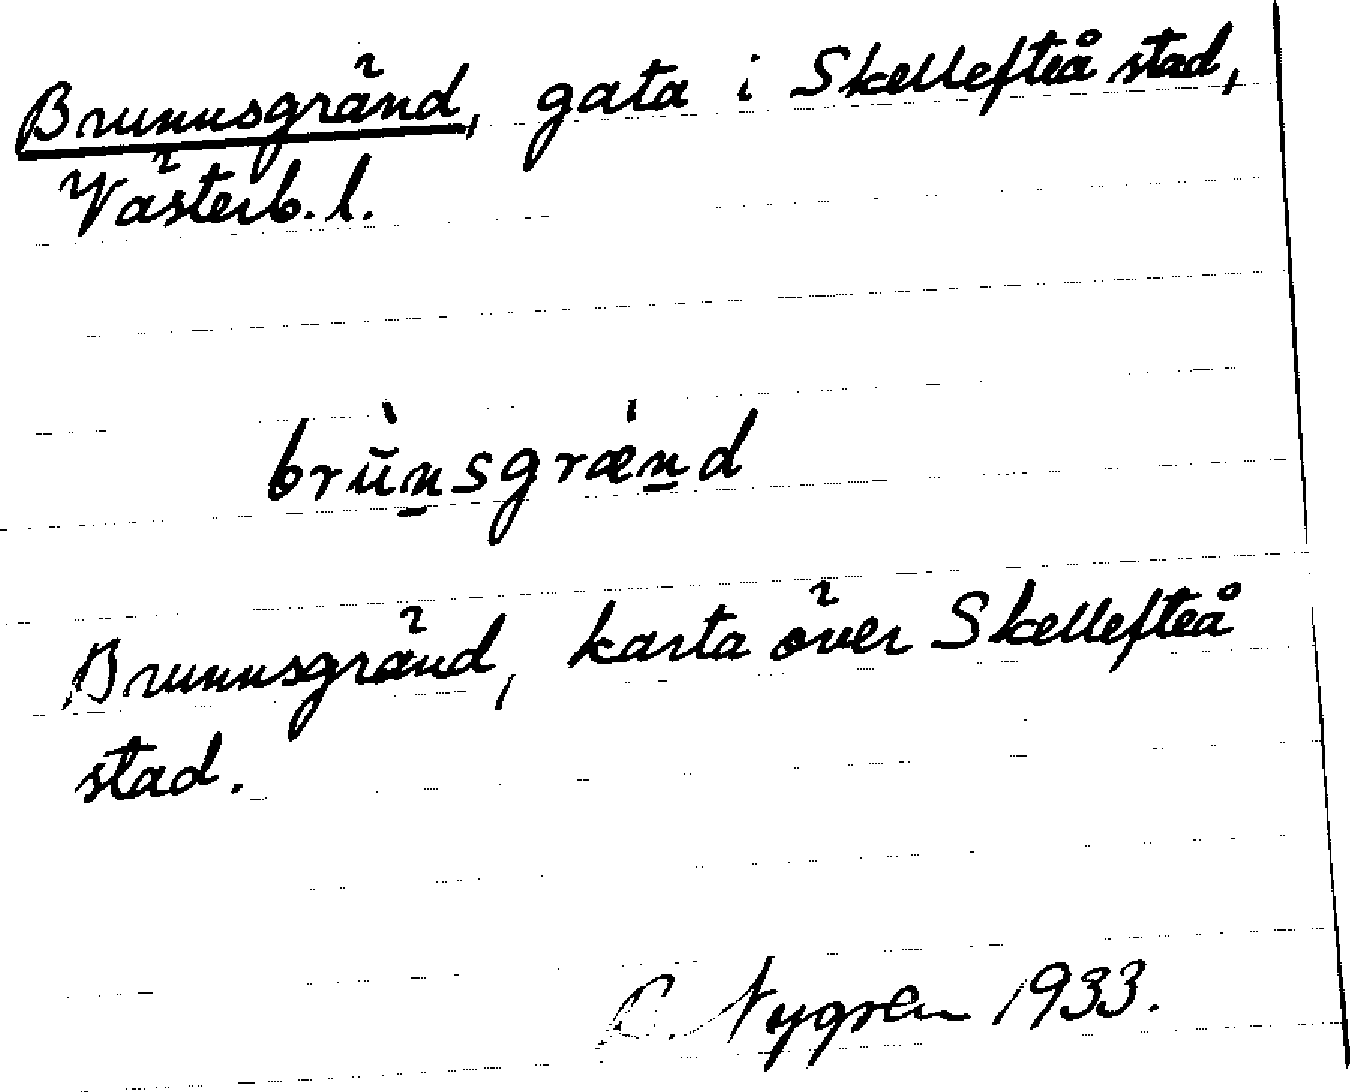 Brunnsgränd, gata i Skellefteå stad,
Västerb. l.
brùn̲sgræ̍n̲d
Brunnsgränd, karta över Skellefteå
stad.
Nygren 1933.